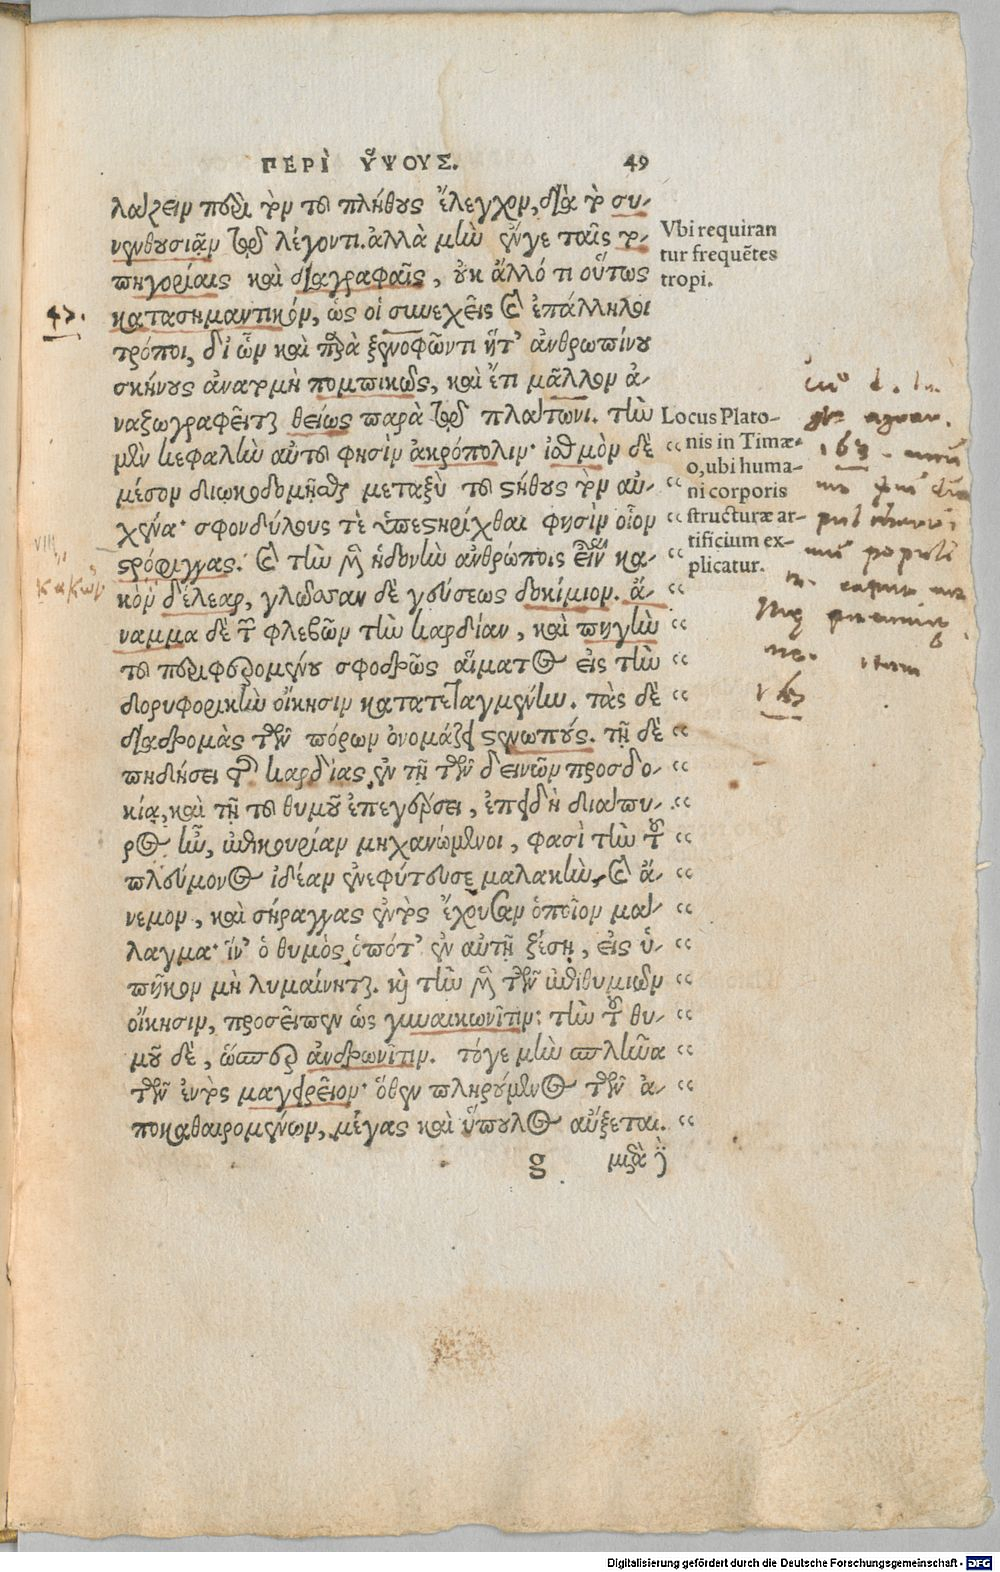 ΠΕΡῚ ὝΨΟΥΣ. 49
λάζειν περὶ τὸν τοῦ πλήθους ἔλεγχον, διὰ τὸ συ-
νενθουσιᾶν τῷ λέγοντι. ἀλλὰ μὴν ἔν γε ταῖς το-
πηγορίαις καὶ διαγραφαῖς, οὐκ ἄλλό τι οὕτως
κατασημαντικόν, ὡς οἱ συνεχεῖς καὶ ἐπάλληλοι
τρόποι, δι' ὧν καὶ παρὰ ξενοφῶντι ἥτ' ἀνθρωπίνου
σκήνους ἀνατομὴ πομπικῶς, καὶ ἔτι μᾶλλον ἀ-
ναζωγραφεῖται θείως παρὰ τῷ πλάτωνι. τὴν
μὲν κεφαλὴν αὐτοῦ φησὶν ἀκρόπολιν· ἰσθμὸν δὲ
μέσον διῳκοδομῆσθαι μεταξὺ τοῦ στήθους τὸν αὐ-
χένα· σφονδύλους τὲ ὑπεστηρίχθαι φησὶν οἷον
στρόφιγγας. καὶ τὴν μὲν ἡδονὴν ἀνθρώποις εἶναι κα-
κὸν δέλεαρ, γλῶσσαν δὲ γεύσεως δοκίμιον. ἄ-
ναμμα δὲ τῶν φλεβῶν τὴν καρδίαν, καὶ πηγὴν
τοῦ περιφερομένου σφοδρῶς αἵματος εἰς τὴν
δορυφορικὴν οἴκησιν κατατεταγμένην. τὰς δὲ
διαδρομὰς τῶν πόρων ὀνομάζει στενωπούς. τῇ δὲ
πηδήσει τῆς καρδίας ἐν τῇ τῶν δεινῶν προσδο-
κίᾳ, καὶ τῇ τοῦ θυμοῦ ἐπεγέρσει, ἐπειδὴ διάπυ-
ρος ἦν, ἐπικουρίαν μηχανώμενοι, φασὶ τὴν τοῦ
πλεύμονος ἰδέαν ἐνεφύτευσε μαλακὴν, καὶ ἄ-
ναιμον, καὶ σήραγγας ἐντὸς ἔχουσαν ὁποῖον μά-
λαγμα· ἵν' ὁ θυμὸς ὁπότ' ἐν αὐτῇ ζέσῃ, εἰς ὑ-
πεῖκον μὴ λυμαίνηται. καὶ τὴν μὲν τῶν ἐπιθυμιῶν
οἴκησιν, προσεῖπεν ὡς γυναικωνῖτιν· τὴν τοῦ θυ-
μοῦ δὲ, ὥσπερ ἀνδρωνῖτιν. τόγε μὴν σπλῆνα
τῶν ἐντὸς μαγειρεῖον· ὅθεν πληρούμενος τῶν ἀ-
ποκαθαιρομένων, μέγας καὶ ὕπουλος αὔξεται.
g μετὰ δὲ
Vbi requiran
tur frequẽtes
tropi.
Locus Plato-
nis in Timæ-
o, ubi huma-
ni corporis
structuræ ar-
tificium ex-
plicatur.
43.
VIII,
κακῶν
163